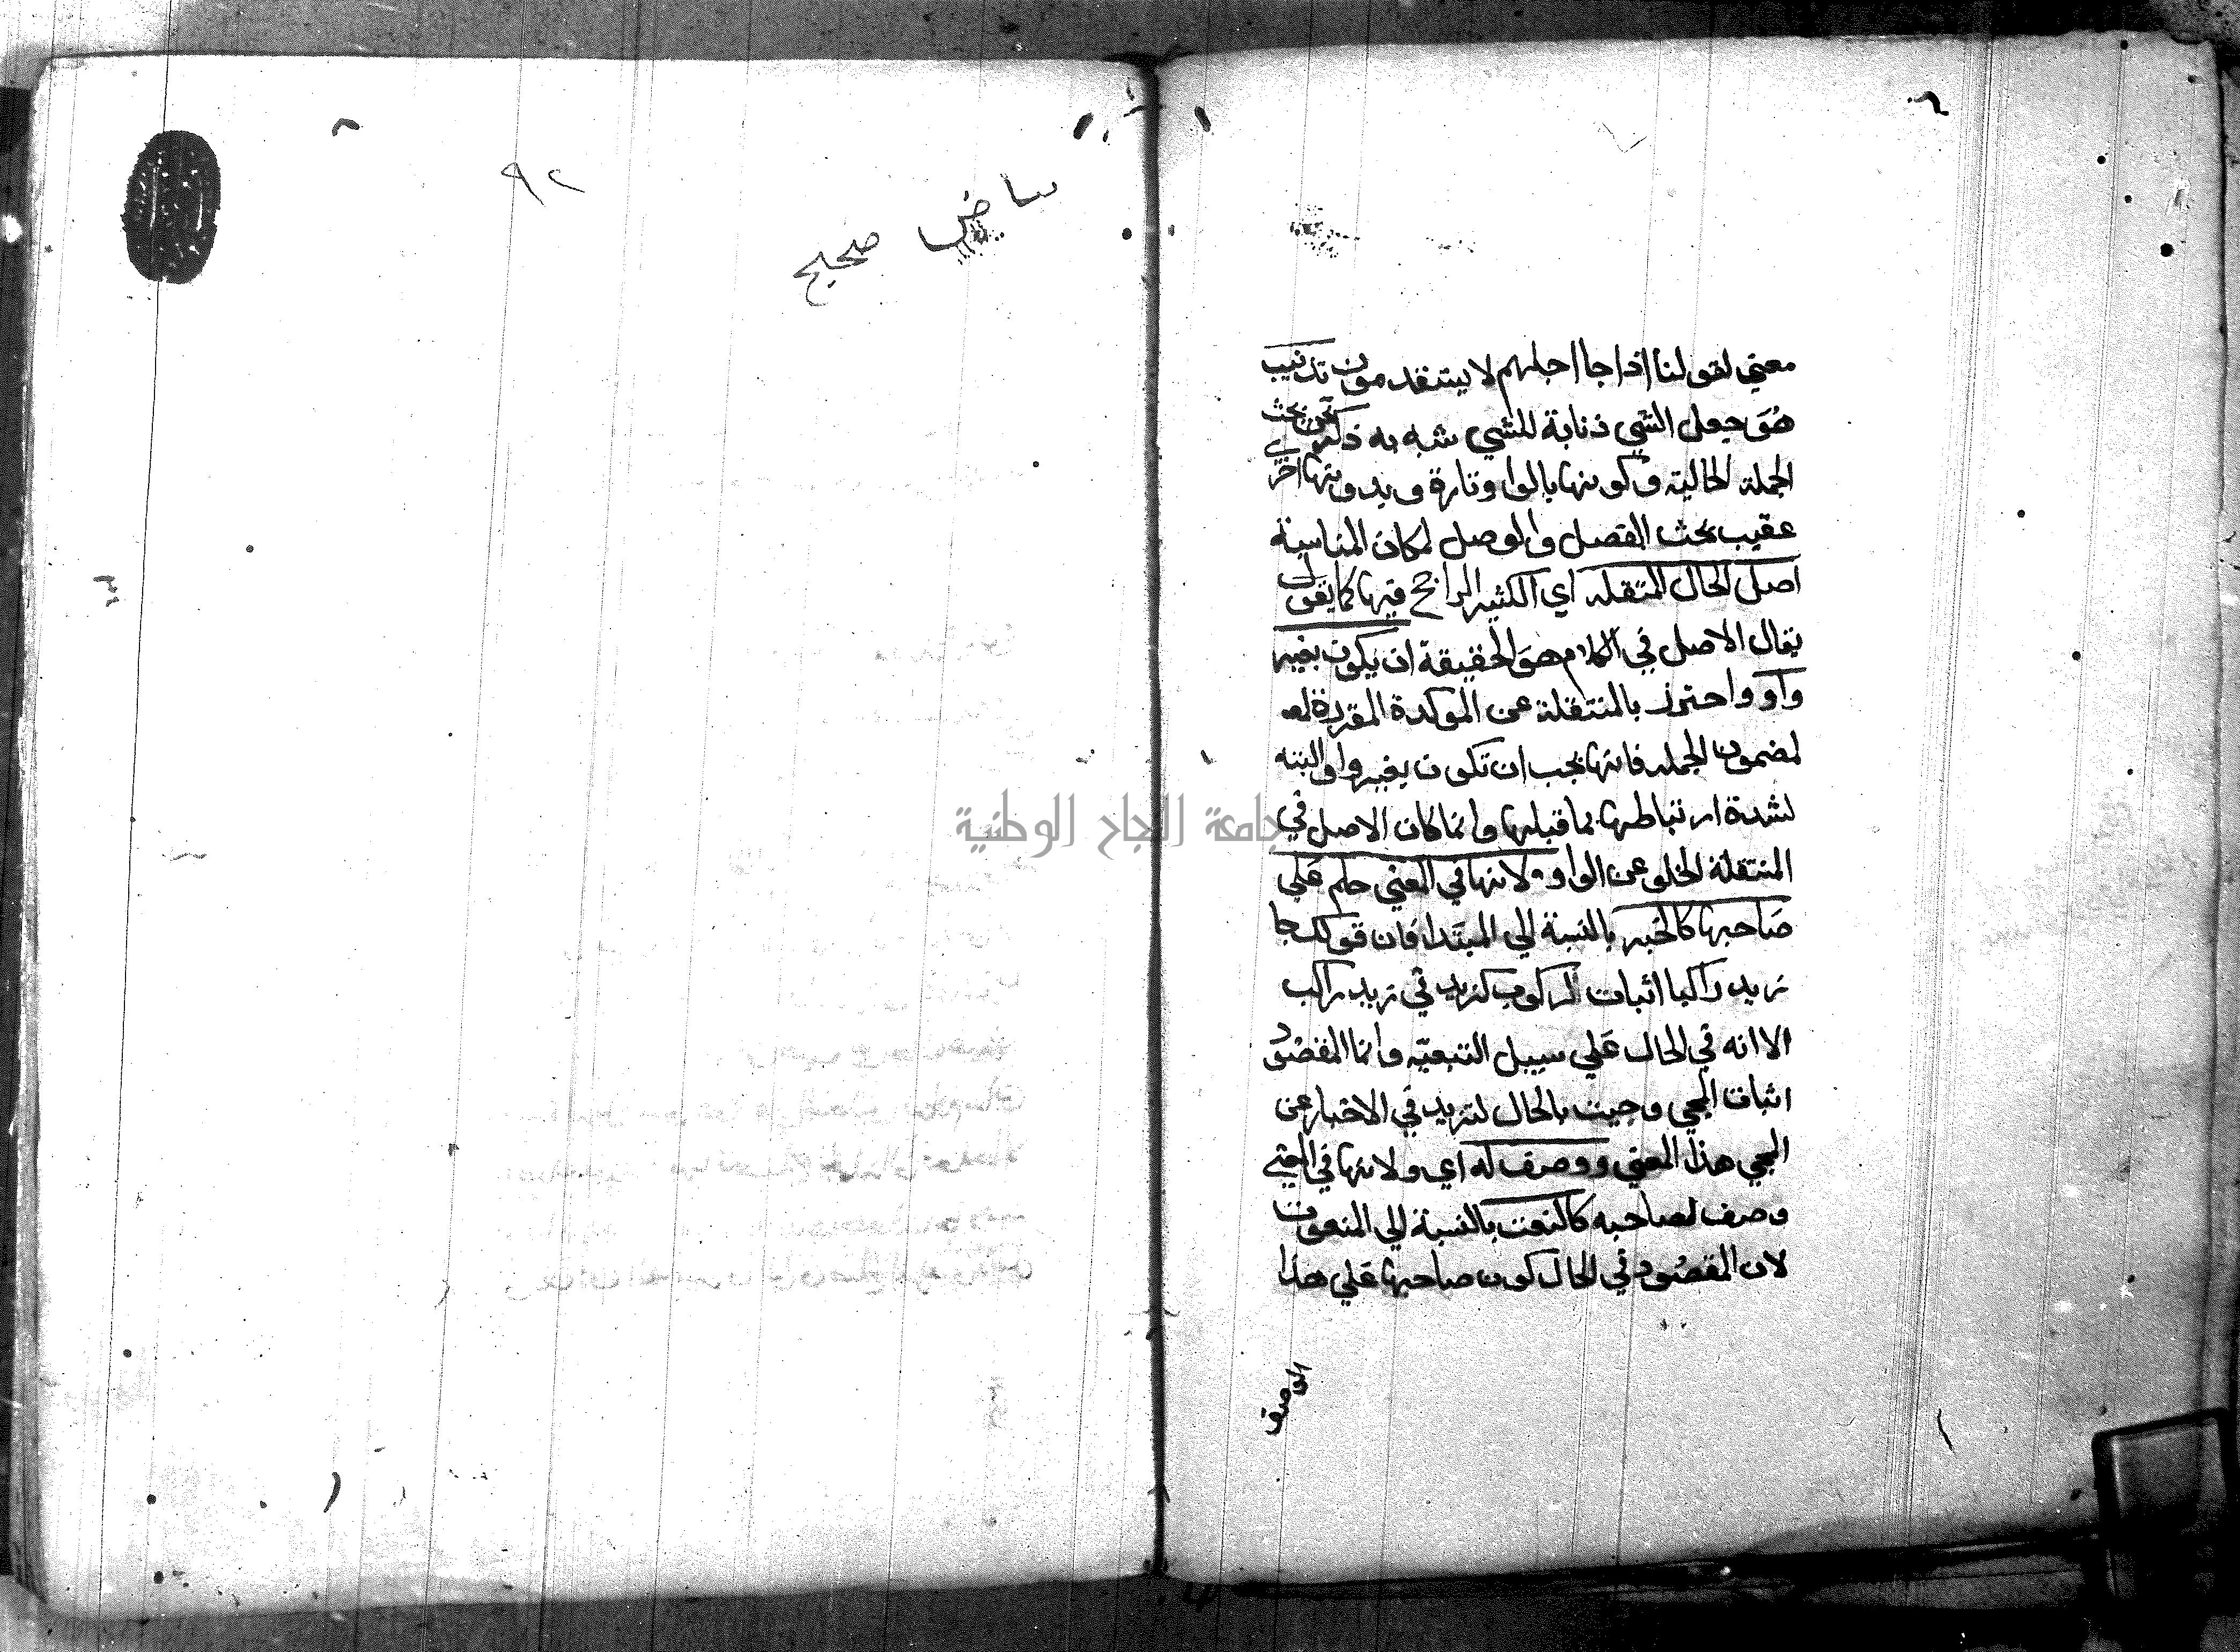 معني لقولنا اذا جا اجلهم لا يستقدمون تذنيب
هُوَ جعل الشي ذنابة للشي شبه به ذكر بحث
الجملة الحالية وكونها بالواو تارة وبدونها اخري
عقيب بحث الفصل والوصل لمكان المناسبة
اصل الحال المنتقله اي الكثير الراجح فيها كما يقول
يقال الاصل في الكلام هوَ الحقيقة ان يكون بغير
واو واحترز بالمنتقلة عن الموكدة المقررة لمـ
لمضمون الجمله فانها يجب ان تكون بغير واو البته
لشدة ارتباطها بما قبلها وانما كان الاصل في
المنتقلة الخلو عن الواو لانها في المعني حكم عَلي
صَاحبها كالخبر بالنسبة الي المبتدا فان قولك جا
زيد راكبا اثبات الركوب لزيد في زيد راكب
الا انه في الحال عَلي سبيل التبعيّه وانما المقصُود
اثبات المجي وجيت بالحال لتزيد في الاخبار عن
المجي هذا المعني ووصف له اي ولانها في المعني
وصف لصاحبه كالنعت بالنسبة الي المنعوت
لان المقصُود في الحال كون صاحبها عَلي هذا
الوصف
٩٢
بياض صحيح
جامعة النجاح الوطنية